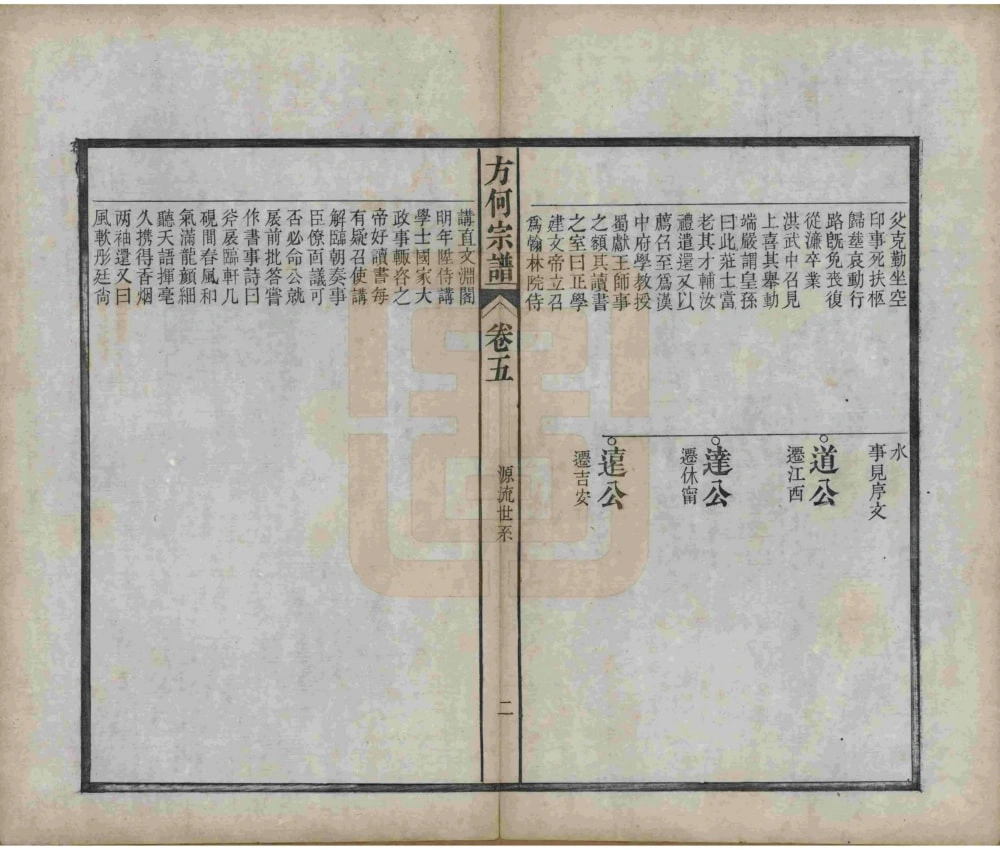 父克勤坐空
印事死扶柩
歸塟哀動行
路旣免喪復
從濂卒業
洪武中召見
上喜其舉動
端嚴謂皇孫
曰此莊士當
老其才輔汝
禮遣還又以
薦召至爲漢
中府學教授
蜀獻王師事
之額其讀書
之室曰正學
建文帝立召
爲翰林院侍
水
事見序文
道公
遷江西
達公
遷休甯
遠公
遷吉安
方何宗譜
卷五
源流世系
二
講直文淵閣
明年陞侍講
學士國家大
政事輒咨之
帝好讀書每
有疑召使講
解臨朝奏事
臣僚面議可
否必命公就
扆前批答嘗
作書事詩曰
斧扆臨軒几
硯間春風和
氣滿龍顏細
聽天語揮毫
久携得香烟
两袖還又曰
風軟彤廷尙